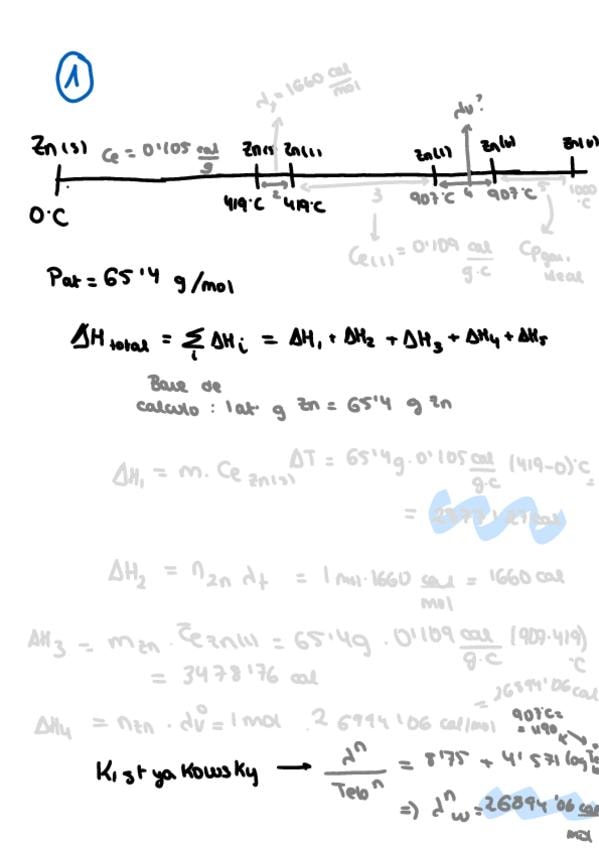 1
λf = 1660 cal/mol
λv?
Zn(s) Ce = 0'105 cal/g Zn(s) Zn(l) Zn(l) Zn(v) Zn(v)
0ºC 419ºC 2 419ºC 3 907ºC 4 907ºC 5 1000ºC
Ce(l) = 0'109 cal/g·c Cp gas ideal
Pat = 65'4 g/mol
ΔH total = Σi ΔHi = ΔH1 + ΔH2 + ΔH3 + ΔH4 + ΔH5
Base de
calculo : 1 at g Zn = 65'4 g Zn
ΔH1 = m. Ce Zn(s) ΔT = 65'4g. 0'105 cal/g·c (419-0)ºC =
= 2877'27 cal
ΔH2 = nZn λf = 1 mol. 1660 cal/mol = 1660 cal
ΔH3 = mZn . C̄e Zn(l) = 65'4g . 0'109 cal/g·c (907-419)ºC
= 3478'76 cal
= 26894'06 cal
ΔH4 = nZn . λvº = 1 mol . 26994'06 cal/mol
907ºC =
= 1190
Kistyakowsky → λⁿ/Tebⁿ = 8'75 + 4'571 log Teb
=> λⁿw = 26894'06 cal/mol